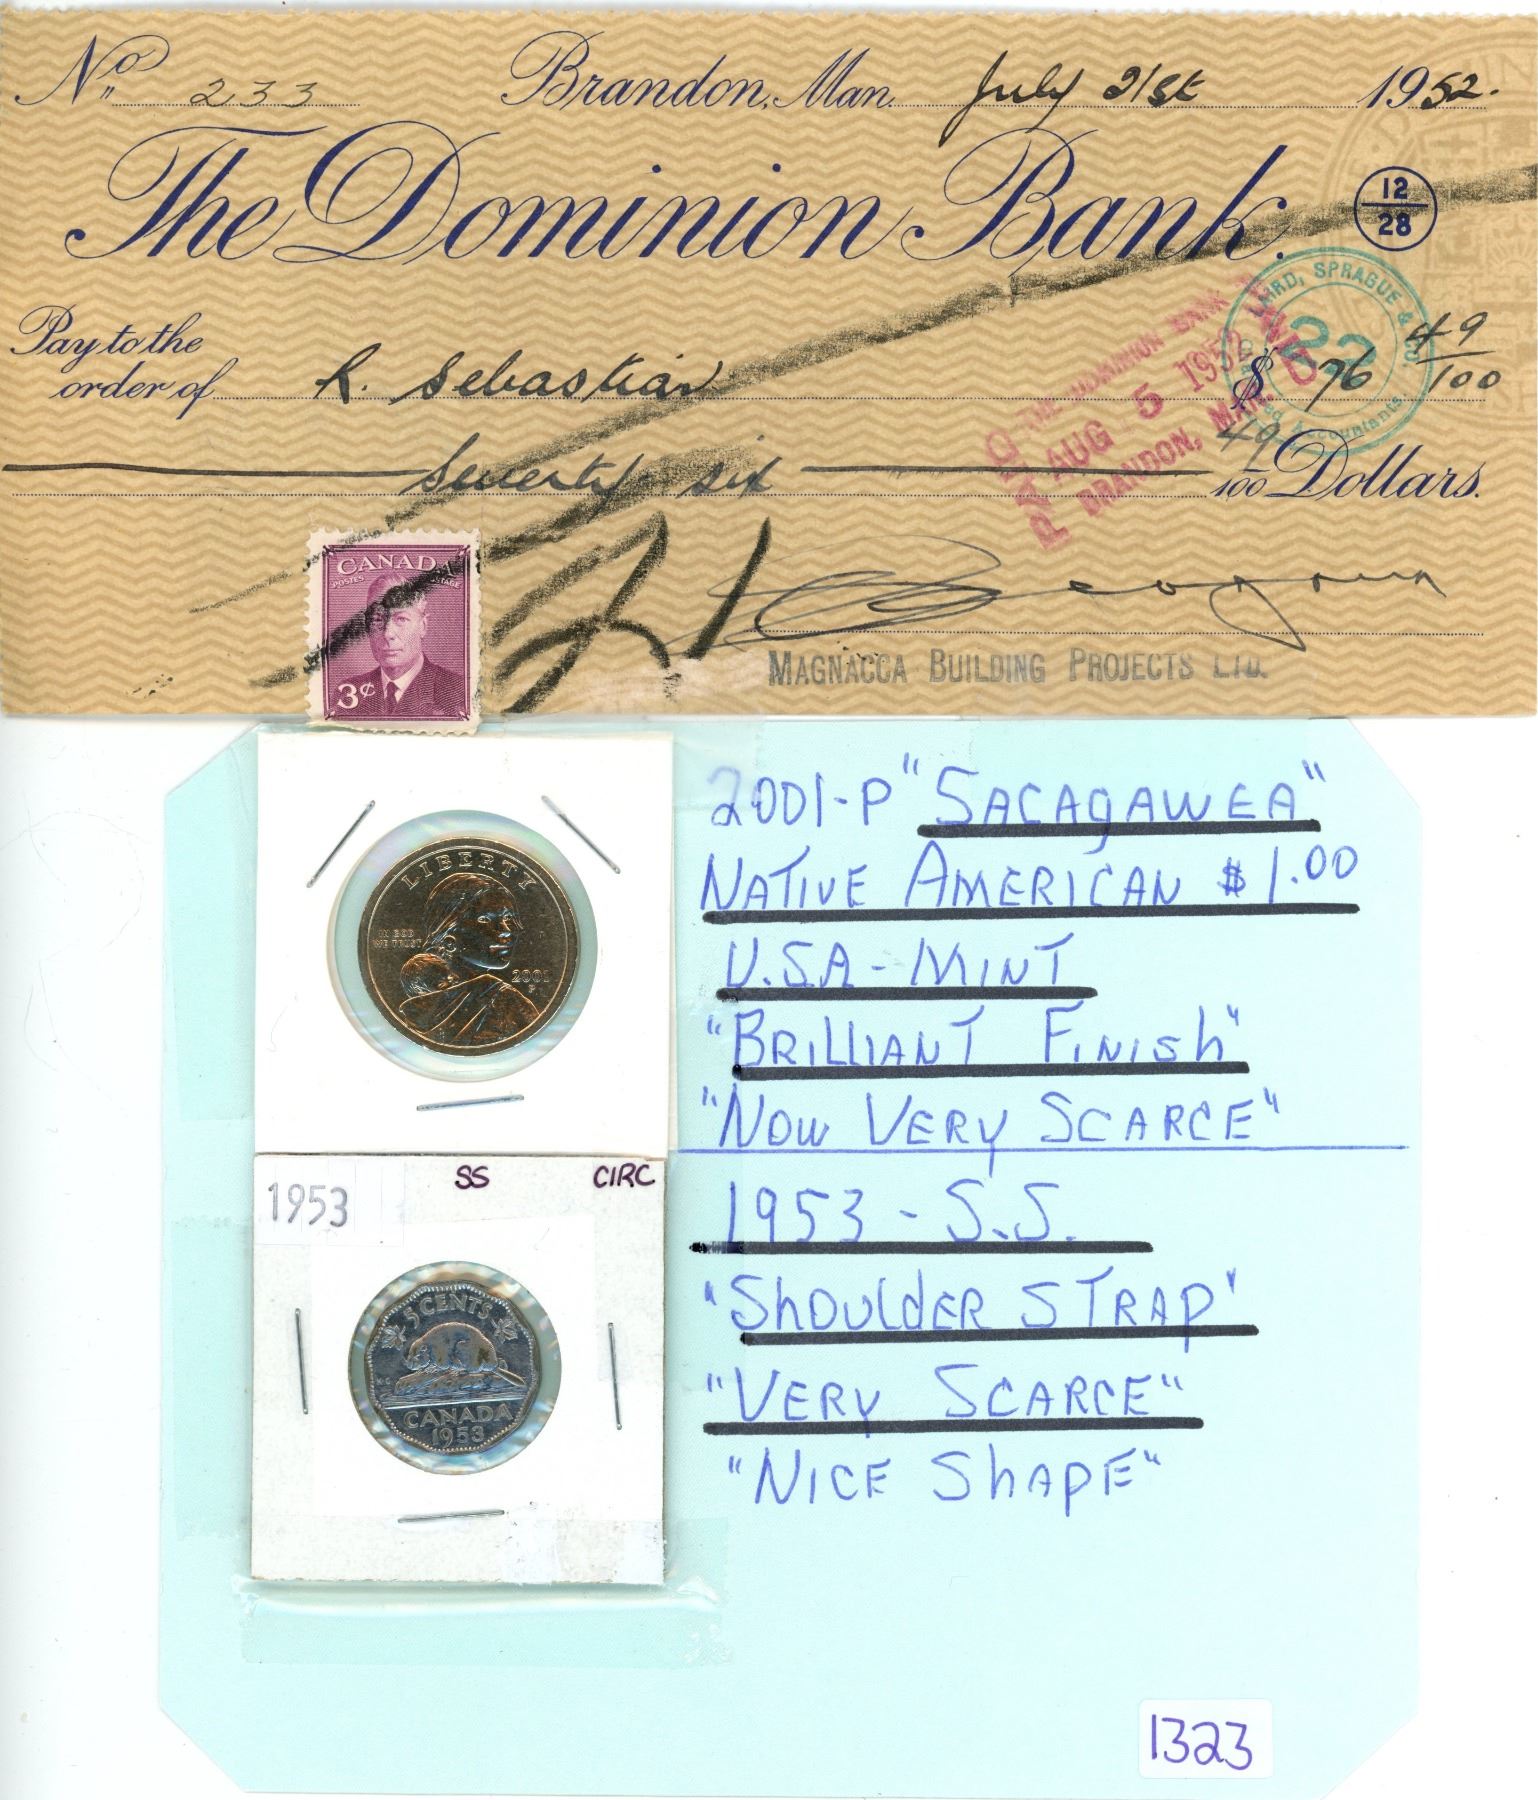 No. 233 Brandon, Man. July 21st 1952.
The Dominion Bank.
12
28
Pay to the
order of R. Sebastian $ 76 49/100
LAIRD, SPRAGUE & CO.
22
Chartered Accountants.
THE DOMINION BANK
PAID
AUG 5 1952
BRANDON, MAN.
Seventy six 49/100 Dollars.
CANADA
POSTES POSTAGE
3¢
MAGNACCA BUILDING PROJECTS LTD.
LIBERTY
IN GOD
WE TRUST
2001
P
2001-P "SACAGAWEA"
NATIVE AMERICAN $1.00
U.S.A - MINT
"BRILLIANT FINISH"
"NOW VERY SCARCE"
1953 SS CIRC
5 CENTS
K·G
CANADA
1953
1953 - S.S.
"SHOULDER STRAP"
"VERY SCARCE"
"NICE SHAPE"
1323